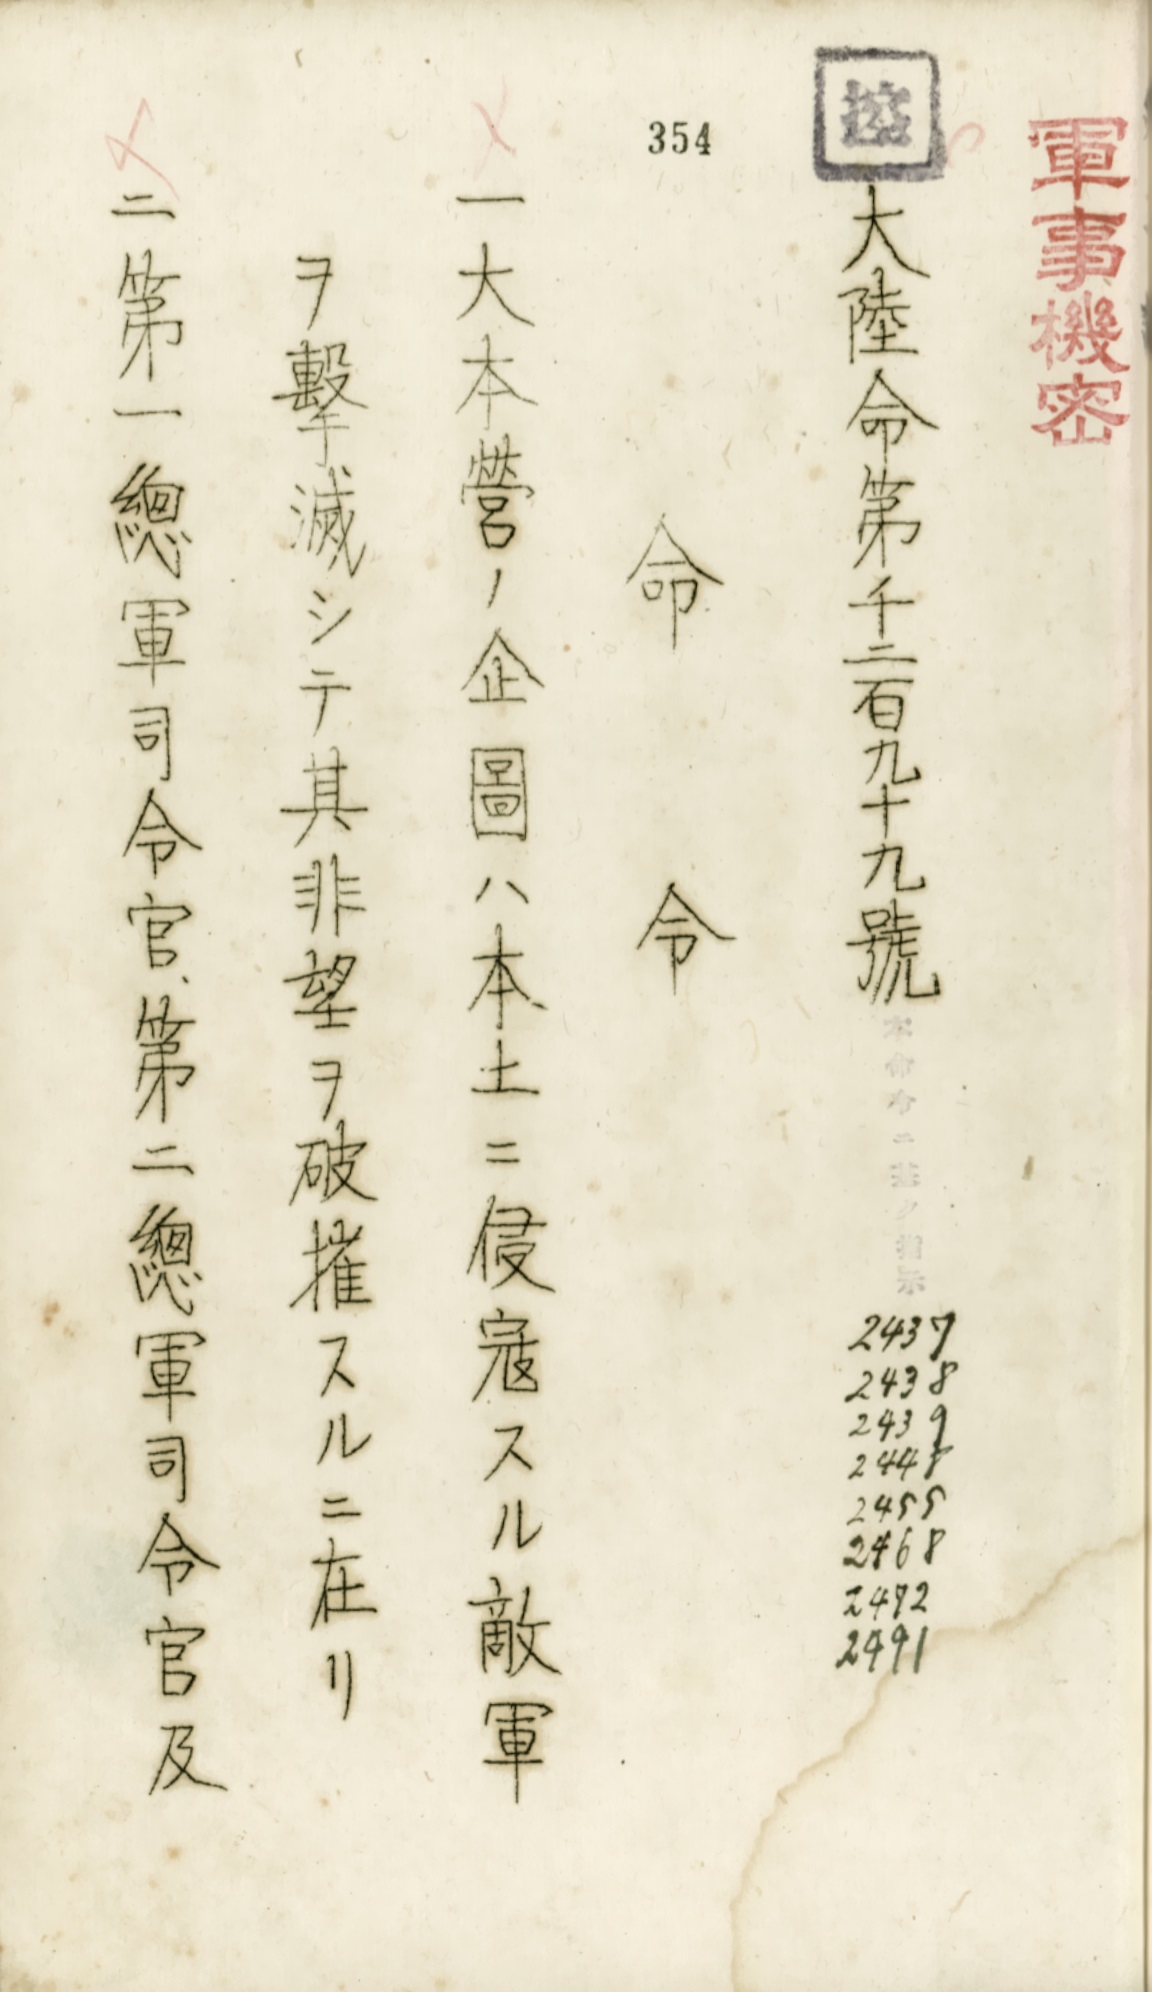 軍事機密
控
大陸命第千二百九十九號
本命令ニ基ク指示
2437
2438
2439
2448
2455
2468
2472
2491
354
命令
一大本營ノ企圖ハ本土ニ侵寇スル敵軍
ヲ擊滅シテ其非望ヲ破摧スルニ在リ
二第一總軍司令官、第二總軍司令官及